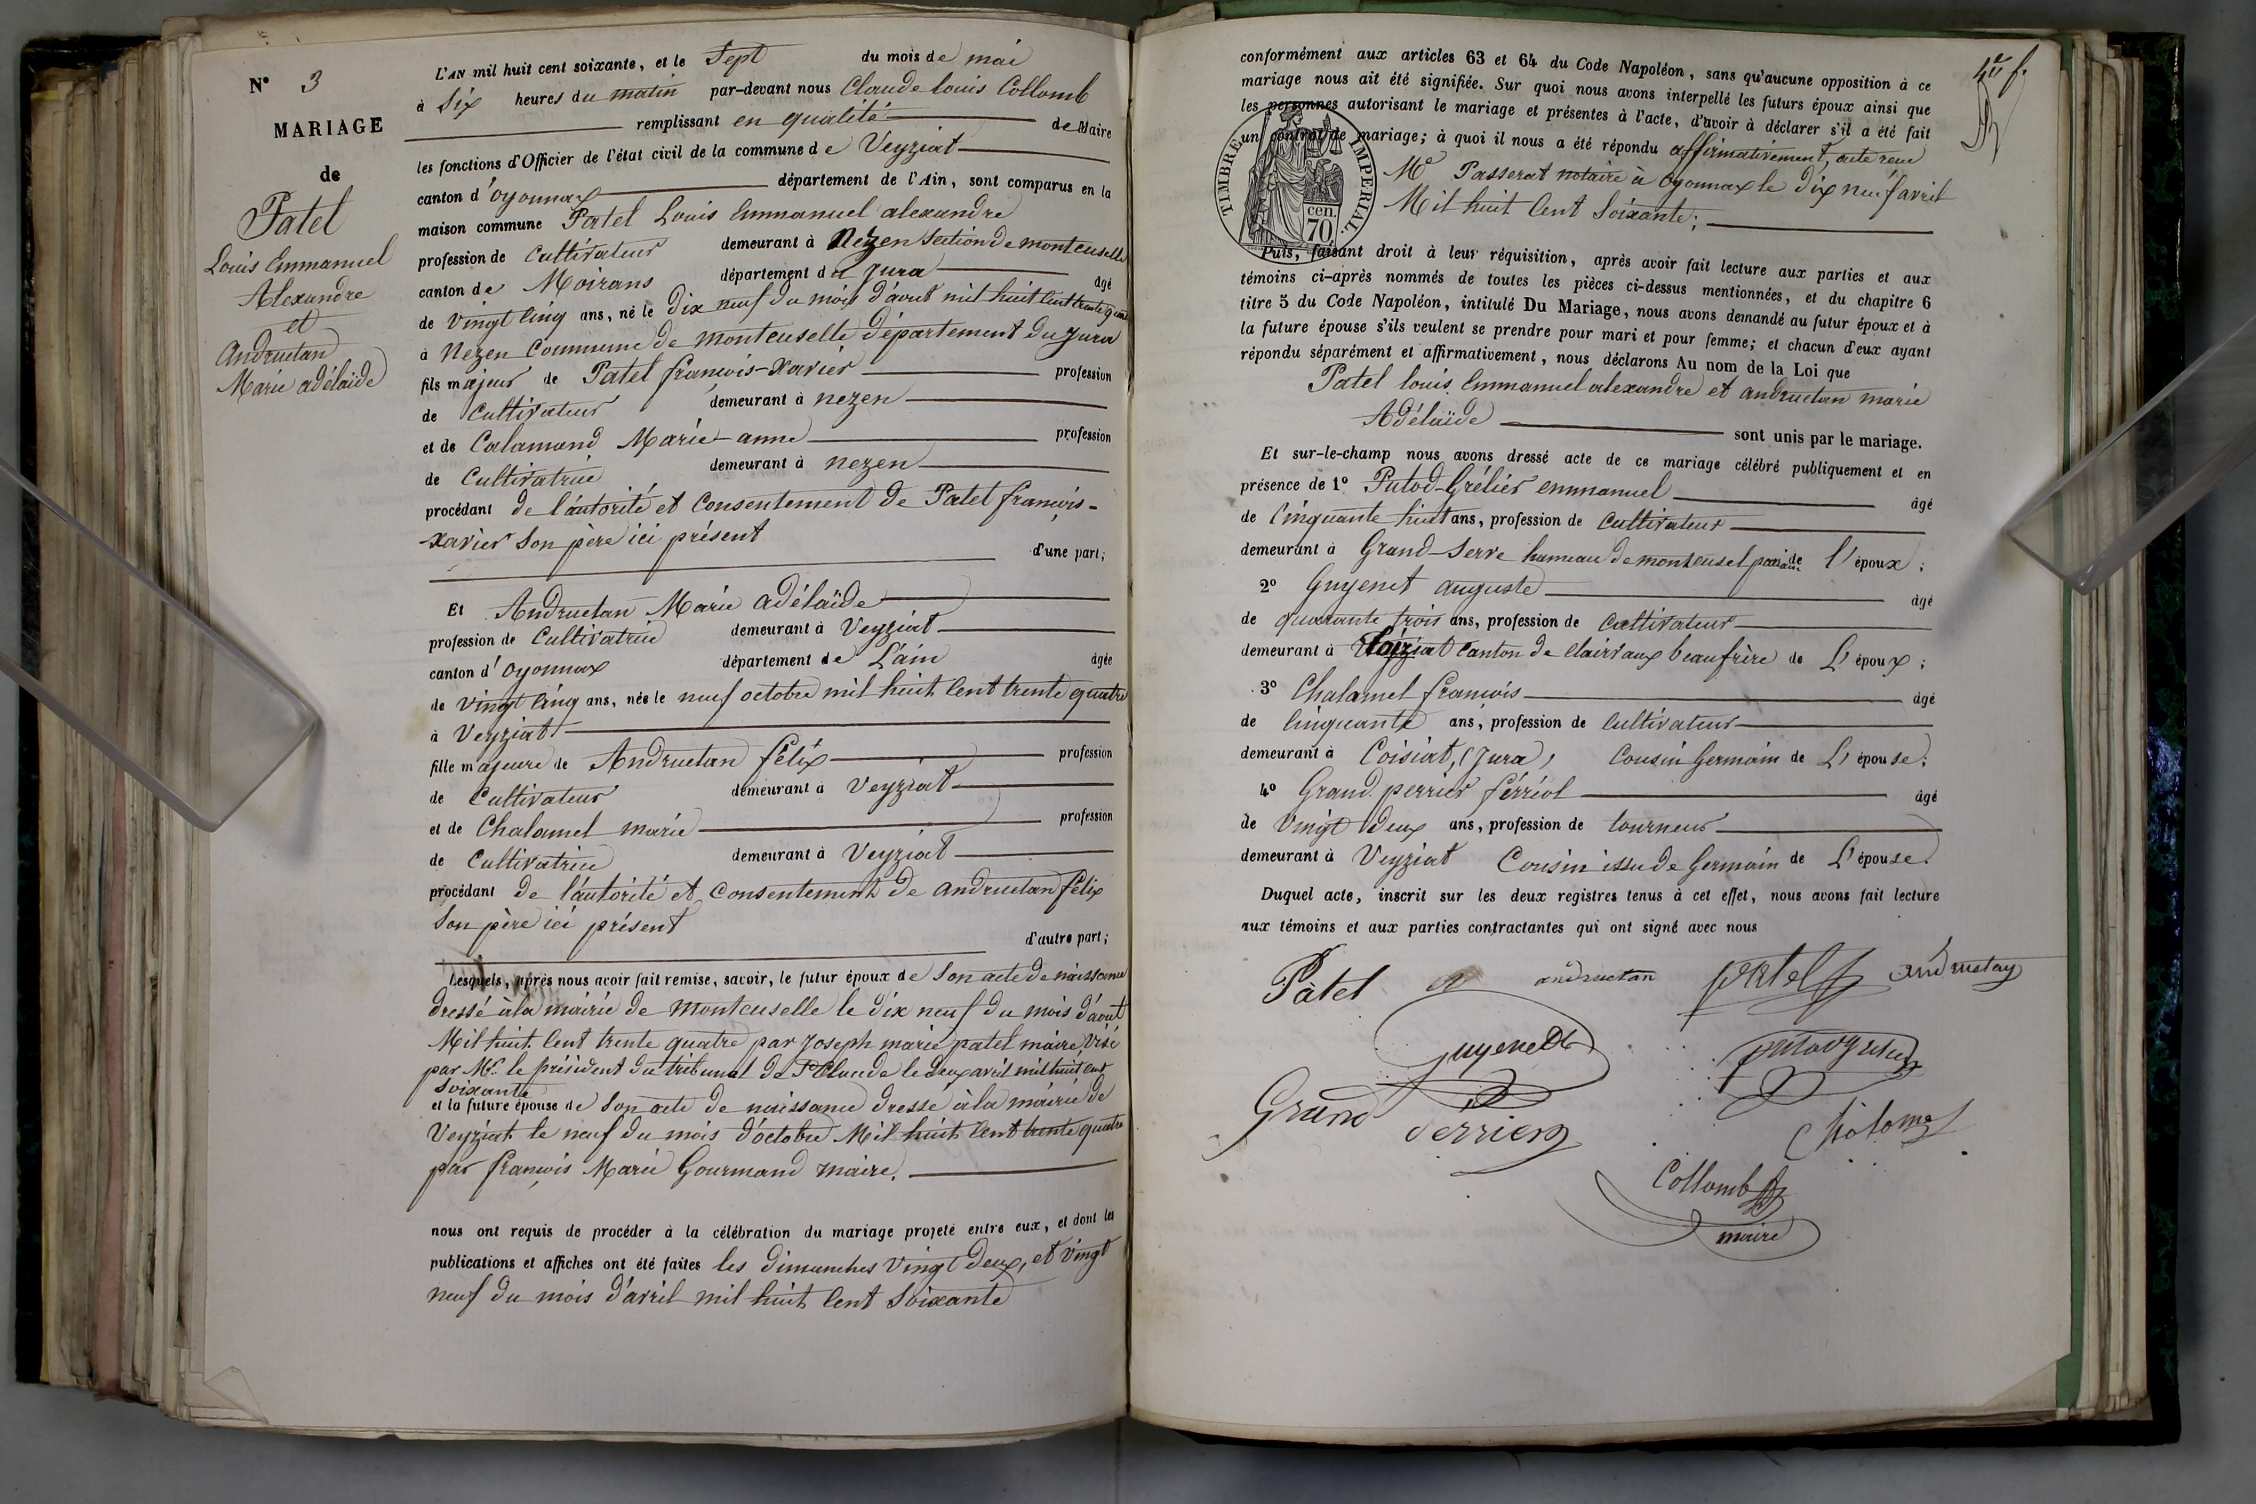 N° 3
MARIAGE
de
Patel
Louis Emmanuel
Alexandre
et
Andruetan
Marie adélaïde
L'AN mil huit cent soixante, et le Sept du mois de mai
à Six heures du matin par-devant nous Claude Louis Collomb
remplissant en qualité de Maire
les fonctions d'Officier de l'état civil de la commune de Veyziat
canton d'oyonnax département de l'Ain, sont comparus en la
maison commune Patel Louis Emmanuel alexandre
profession de Cultivateur demeurant à Nezen Section de montcuselle
canton de Moirans département du Jura âgé
de vingt Cinq ans, né le dix neuf du mois d'aout mil huit Cent trente quatre
à Nezen Commune de montcuselle département du Jura
fils majeur de Patel françois-Xavier profession
de Cultivateur demeurant à nezen
et de Calamand Marie-anne profession
de Cultivatrice demeurant à nezen
procédant de l'autorité et Consentement de Patel françois-
xavier Son père ici présent
d'une part;
Et Andruetan Marie adélaïde
profession de Cultivatrice demeurant à Veyziat
canton d'oyonnax département de L'ain âgée
de vingt Cinq ans, née le neuf octobre mil huit Cent trente quatre
à Veyziat
fille majeure de Andruetan félix profession
de Cultivateur demeurant à Veyziat
et de Chalamel marie profession
de Cultivatrice demeurant à Veyziat
procédant de l'autorité et Consentement de andruetan félix
Son père ici présent
d'autre part;
Lesquels, après nous avoir fait remise, savoir, le futur époux de Son acte de naissance
dressé à la mairie de montcuselle le dix neuf du mois d'aout
Mil huit Cent trente quatre par Joseph marie patel maire, visé
par Mr. le président du tribunal de St Claude le deux avril mil huit cent
Soixante
et la future épouse de Son acte de naissance dressé à la mairie de
Veyziat le neuf du mois d'octobre Mil huit Cent trente quatre
par françois Marie Gourmand maire.
nous ont requis de procéder à la célébration du mariage projeté entre eux, et dont les
publications et affiches ont été faites les dimanches Vingt deux, et vingt
neuf du mois d'avril mil huit Cent Soixante
conformément aux articles 63 et 64 du Code Napoléon, sans qu'aucune opposition à ce
mariage nous ait été signifiée. Sur quoi nous avons interpellé les futurs époux ainsi que
les personnes autorisant le mariage et présentes à l'acte, d'avoir à déclarer s'il a été fait
un contrat de mariage; à quoi il nous a été répondu affirmativement, acte reçu
Me Passerat notaire à Oyonnax le dix neuf avril
Mil huit Cent Soixante;
TIMBRE IMPERIAL.
cen.
70
Puis, faisant droit à leur réquisition, après avoir fait lecture aux parties et aux
témoins ci-après nommés de toutes les pièces ci-dessus mentionnées, et du chapitre 6
titre 5 du Code Napoléon, intitulé Du Mariage, nous avons demandé au futur époux et à
la future épouse s'ils veulent se prendre pour mari et pour femme; et chacun d'eux ayant
répondu séparément et affirmativement, nous déclarons Au nom de la Loi que
Patel louis Emmanuel alexandre et andruetan marie
Adélaïde sont unis par le mariage.
Et sur-le-champ nous avons dressé acte de ce mariage célébré publiquement et en
présence de 1° Putod-Grélier emmanuel âgé
de Cinquante huit ans, profession de Cultivateur
demeurant à Grand-Serve hameau de montcusel de l'époux;
2° Guyenet auguste âgé
de quarante trois ans, profession de Cultivateur
demeurant à canton de Clairvaux beaufrère de L'époux;
3° Chalamel françois âgé
de Cinquante ans, profession de Cultivateur
demeurant à Coisiat, (Jura, Cousin Germain de L'épouse;
4° Grand perrier férréol âgé
de vingt deux ans, profession de tourneur
demeurant à Veyziat Cousin issu de Germain de L'épouse.
Duquel acte, inscrit sur les deux registres tenus à cet effet, nous avons fait lecture
aux témoins et aux parties contractantes qui ont signé avec nous
Patel a andruetan patel andruetan
guyenet
Grand Perrier
Collomb
maire